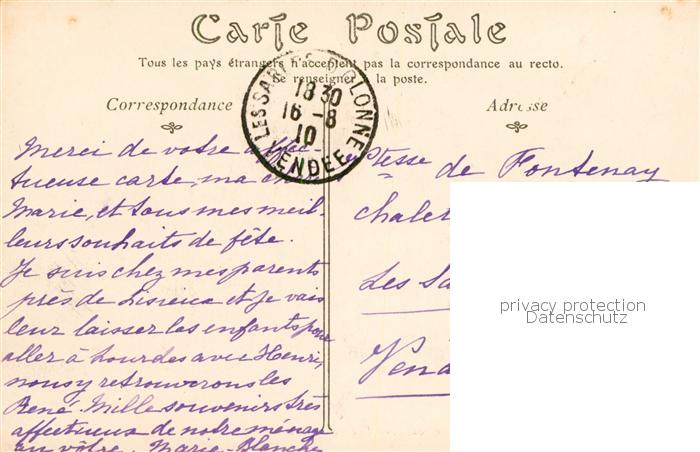 Carte Postale
Tous les pays étrangers n'acceptent pas la correspondance au recto.
Se renseigner à la poste.
Correspondance
Adresse
LES SABLES D'OLONNE
18 30
16 - 8
10
VENDEE
Merci de votre affec-
tueuse carte, ma
Marie, et tous mes meil-
leurs souhaits de fête.
Je suis chez mes parents
près de Lisieux et je vais
leur laisser les enfants pour
aller à Lourdes avec Henri,
nous y retrouverons les
René. Mille souvenirs très
affectueux de notre ménage
au vôtre. Marie-Blanche
Ctesse de Fontenay
chalet
Les Sa
Vend
privacy protection
Datenschutz